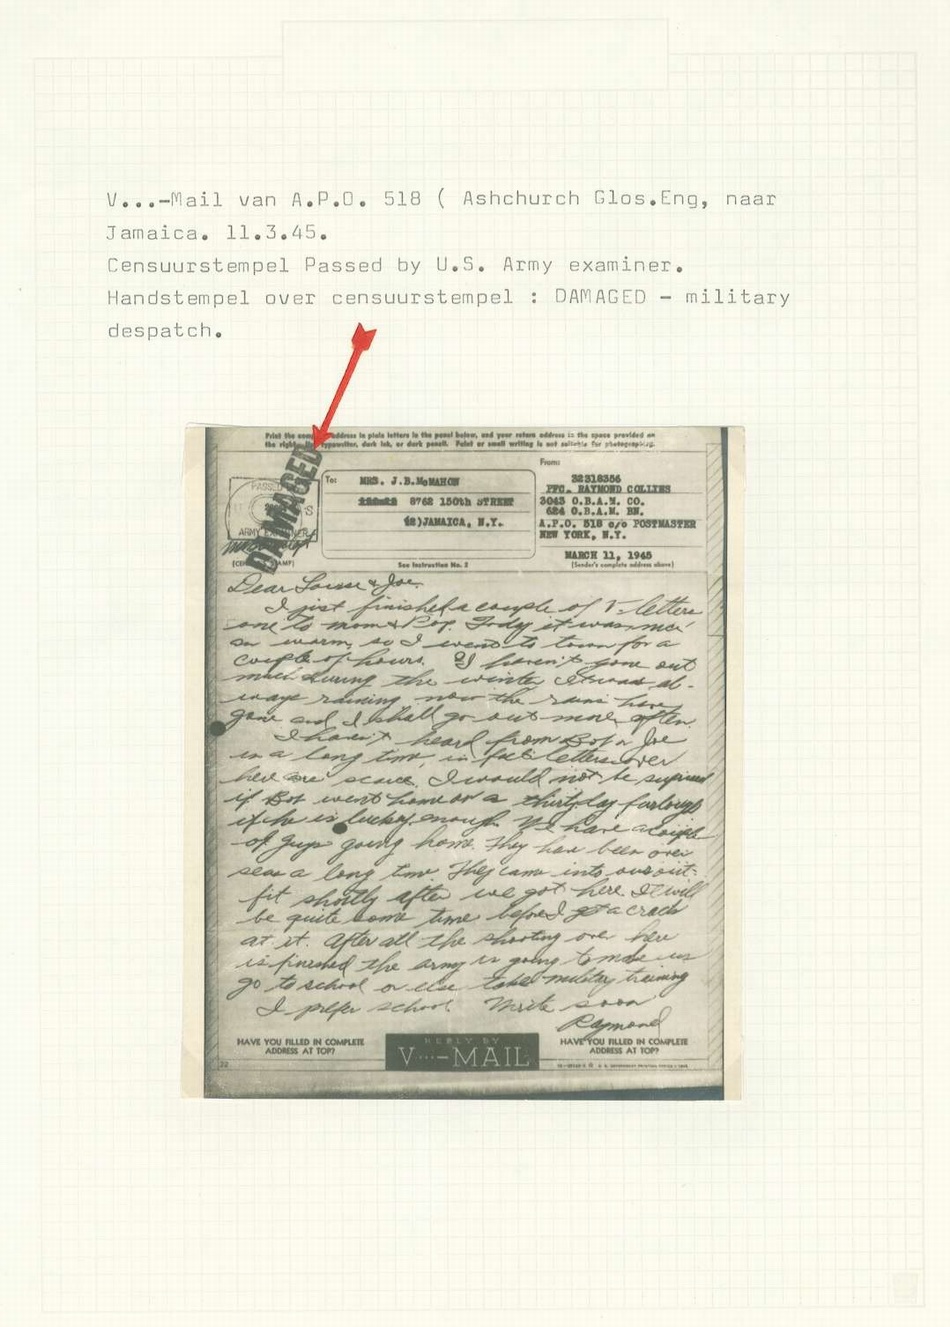 V...-Mail van A.P.O. 518 ( Ashchurch Glos.Eng, naar
Jamaica. 11.3.45.
Censuurstempel Passed by U.S. Army examiner.
Handstempel over censuurstempel : DAMAGED - military
despatch.
Print the complete address in plain letters in the panel below, and your return address in the space provided on
the right. Use typewriter, dark ink, or dark pencil. Faint or small writing is not suitable for photographing.
DAMAGED
PASSED BY
U S
ARMY EXAMINER
To:
MRS. J.B.McMAHON
8762 150th STREET
(2)JAMAICA, N.Y.
From:
32318356
PFC. RAYMOND COLLINS
3043 O.B.A.M. CO.
624 O.B.A.M. BN.
A.P.O. 518 c/o POSTMASTER
NEW YORK, N.Y.
MARCH 11, 1945
(CENSOR'S STAMP)
See Instruction No. 2
(Sender's complete address above)
Dear Louise & Joe,
I just finished a couple of V-letters
one to mom & Pop. Today it was nice
and warm, so I went to town for a
couple of hours. I haven't gone out
much during the winter It was al-
ways raining now the rains have
gone and I shall go out more often.
I haven't heard from Bob or Joe
in a long time, in fact letters over
here are scarce. I would not be suprised
if Bob went home on a thirty day furlough
if he is lucky enough. We have a couple
of guys going home. They have been over
seas a long time. They came into our out-
fit shortly after we got here. It will
be quite some time before I get a crack
at it. After all the shooting over here
is finished the army is going to make us
go to school or else take military training
I prefer school. Write soon
Raymond
HAVE YOU FILLED IN COMPLETE
ADDRESS AT TOP?
REPLY BY
V···—MAIL
HAVE YOU FILLED IN COMPLETE
ADDRESS AT TOP?